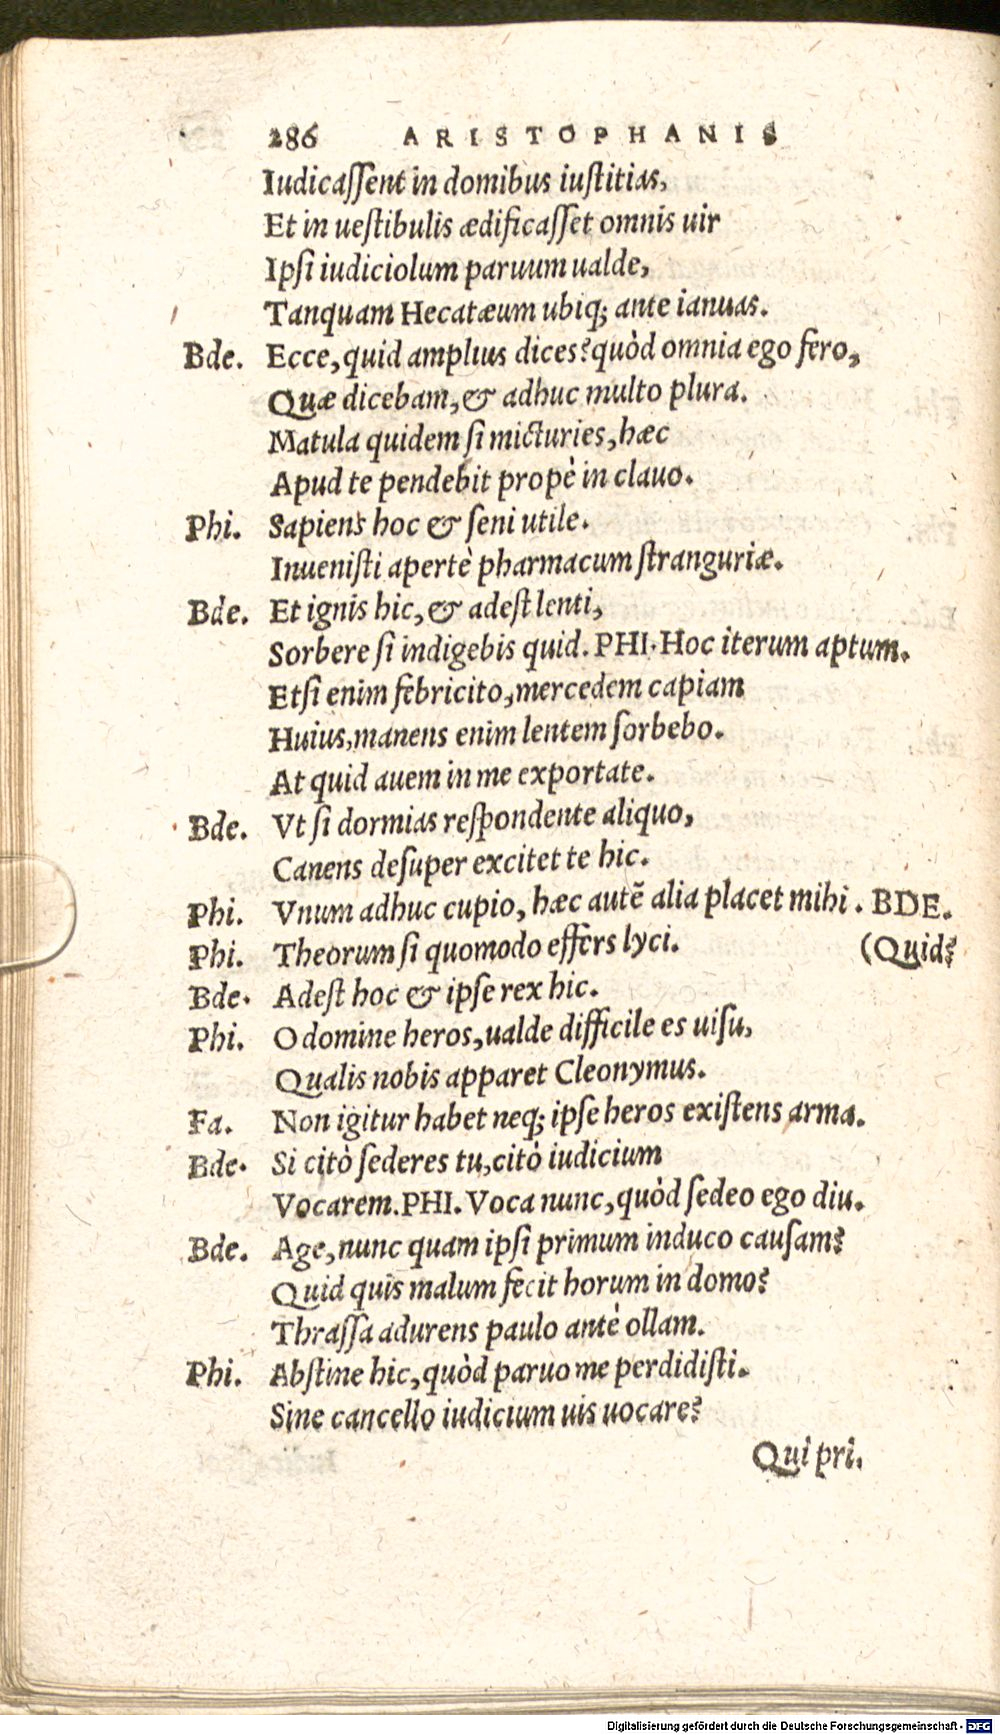 286 ARISTOPHANIS
Iudicaſſent in domibus iuſtitias,
Et in ueſtibulis ædificaſſet omnis uir
Ipſi iudiciolum paruum ualde,
Tanquam Hecatæum ubiq; ante ianuas.
Bde. Ecce, quid amplius dices? quòd omnia ego fero,
Quæ dicebam, & adhuc multo plura.
Matula quidem ſi micturies, hæc
Apud te pendebit propè in clauo.
Phi. Sapiens hoc & ſeni utile.
Inueniſti apertè pharmacum ſtranguriæ.
Bde. Et ignis hic, & adeſt lenti,
Sorbere ſi indigebis quid. PHI. Hoc iterum aptum.
Etſi enim febricito, mercedem capiam
Huius, manens enim lentem ſorbebo.
At quid auem in me exportate.
Bde. Vt ſi dormias reſpondente aliquo,
Canens deſuper excitet te hic.
Phi. Vnum adhuc cupio, hæc autẽ alia placet mihi. BDE.
Phi. Theorum ſi quomodo effers lyci. (Quid?
Bde. Adeſt hoc & ipſe rex hic.
Phi. O domine heros, ualde difficile es uiſu,
Qualis nobis apparet Cleonymus.
Fa. Non igitur habet neq; ipſe heros exiſtens arma.
Bde. Si citò ſederes tu, citò iudicium
Vocarem. PHI. Voca nunc, quòd ſedeo ego diu.
Bde. Age, nunc quam ipſi primum induco cauſam?
Quid quis malum fecit horum in domo?
Thraſſa adurens paulo antè ollam.
Phi. Abſtine hic, quòd paruo me perdidiſti.
Sine cancello iudicium uis uocare?
Qui pri.
Digitalisierung gefördert durch die Deutsche Forschungsgemeinschaft - DFG